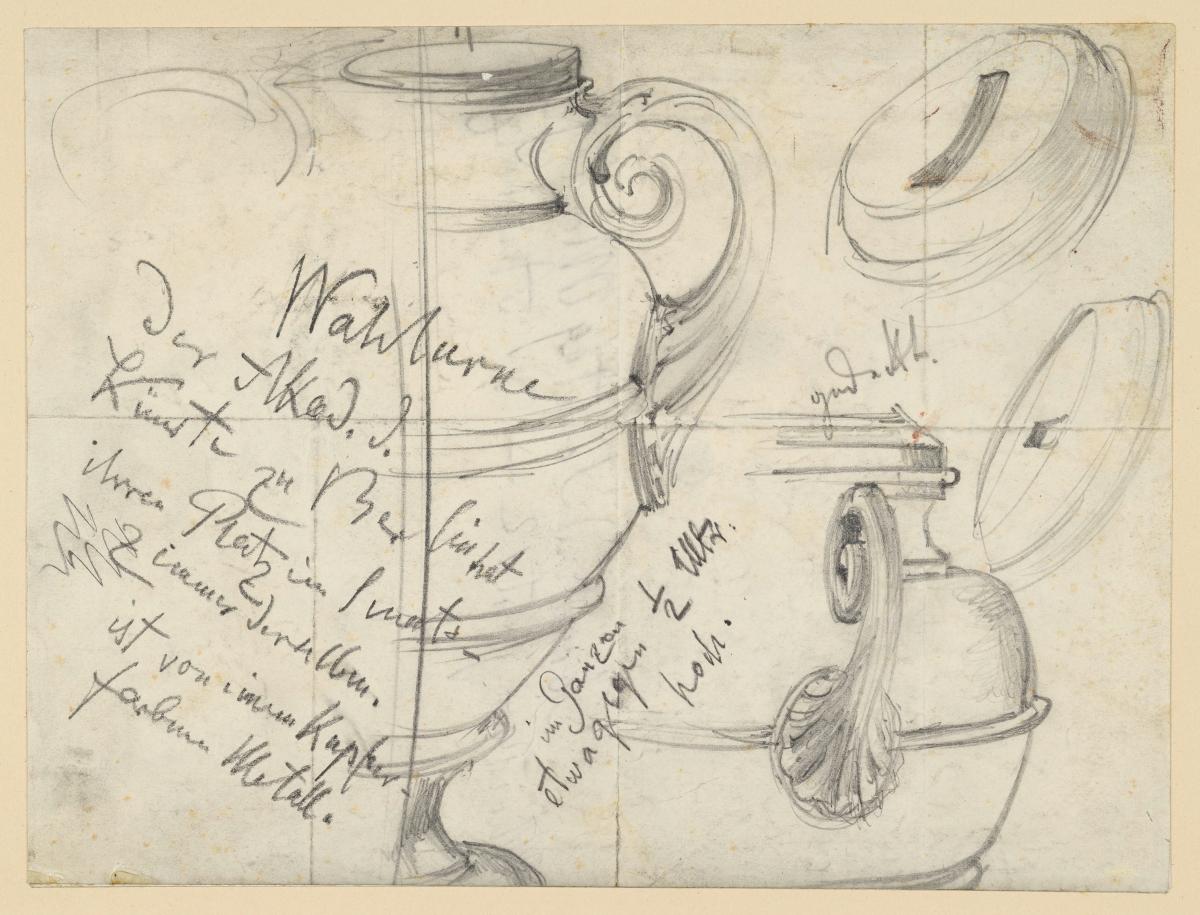 Wahlurne
der Akad. d.
Künste zu Berlin hat
ihren Platz im Senats-
Zimmer derselben.
ist von einem Kupfer-
farbenen Metall.
gedeckt.
im Ganzen
etwa gegen 1/2 Mtr.
hoch.